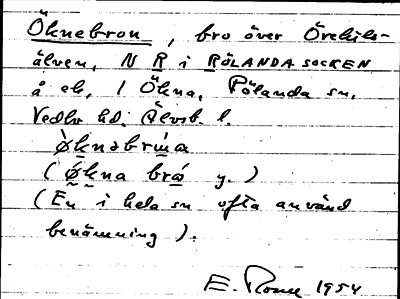 Öknebron, bro över Örekils-
älven, N R i RÖLANDA SOCKEN
å ek, 1 Ökna, Rölanda sn,
Vedbo hd. Älvsb. l.
ø̀knəbrúa
(ø̀kna bró y.)
(En i hela sn ofta använd
benämning).
E. 1954